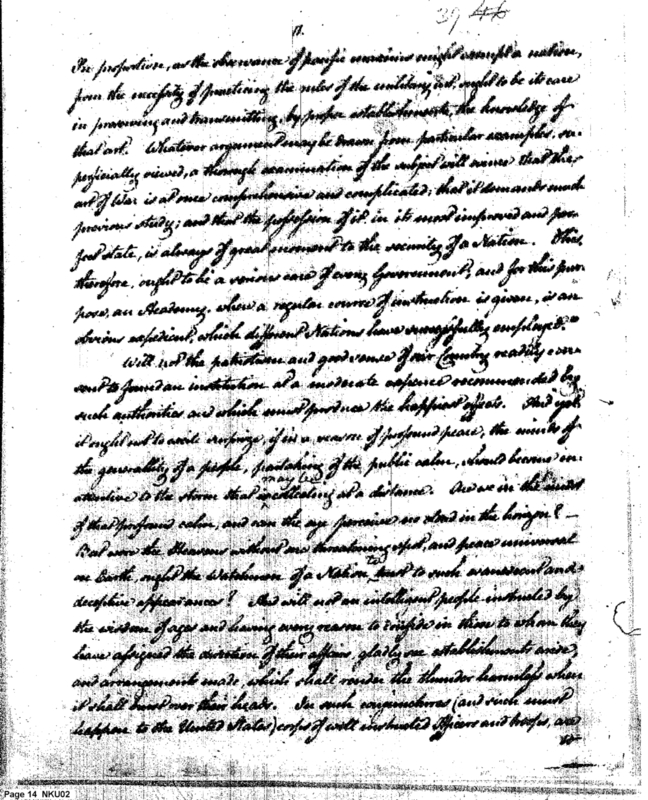 39 46
11.
In proportion, as the observance of pacific maxims might exempt a nation,
from the necessity of practicing the rules of the military art, ought to be its care
in preserving and transmitting, by proper establishments, the knowledge of
that art. Whatever argument may be drawn from particular examples, su-
perficially viewed, a thorough examination of the subject will evince that the
art of War is at once comprehensive and complicated; that it demands much
previous study; and that the possession of it in its most improved and per-
fect state, is always of great moment to the security of a Nation. This,
therefore, ought to be a serious care of every Government; and for this pur-
pose, an Academy, where a regular course of instruction is given, is an
obvious expedient, which different Nations have successfully employed."
Will not the patriotism and good sense of our Country readily con-
sent to found an institution at a moderate expence recommended by
such authorities and which must produce the happiest effects. And yet
it ought not to excite surprize, if in a season of profound peace, the minds of
the generallity of a people, partaking of the public calm, should become in-
may be
attentive to the storm that collecting at a distance. Are we in the midst
of that profound calm, and can the eye perceive no cloud in the horizon? —
But were the Heavens without one threatening spot, and peace universal
to
on Earth, ought the Watchmen of a Nation trust to such evanescent and
deceptive appearances? And will not an intelligent people instructed by
the wisdom of ages and having every reason to confide in them to whom they
have assigned the direction of their affairs, gladly see establishments arise,
and arrangements made, which shall render the thunder harmless when
it shall burst over their heads. In such conjunctures (and such must
happen to the United States) corps of well instructed Officers and troops, are
to
Page 14 NKU02